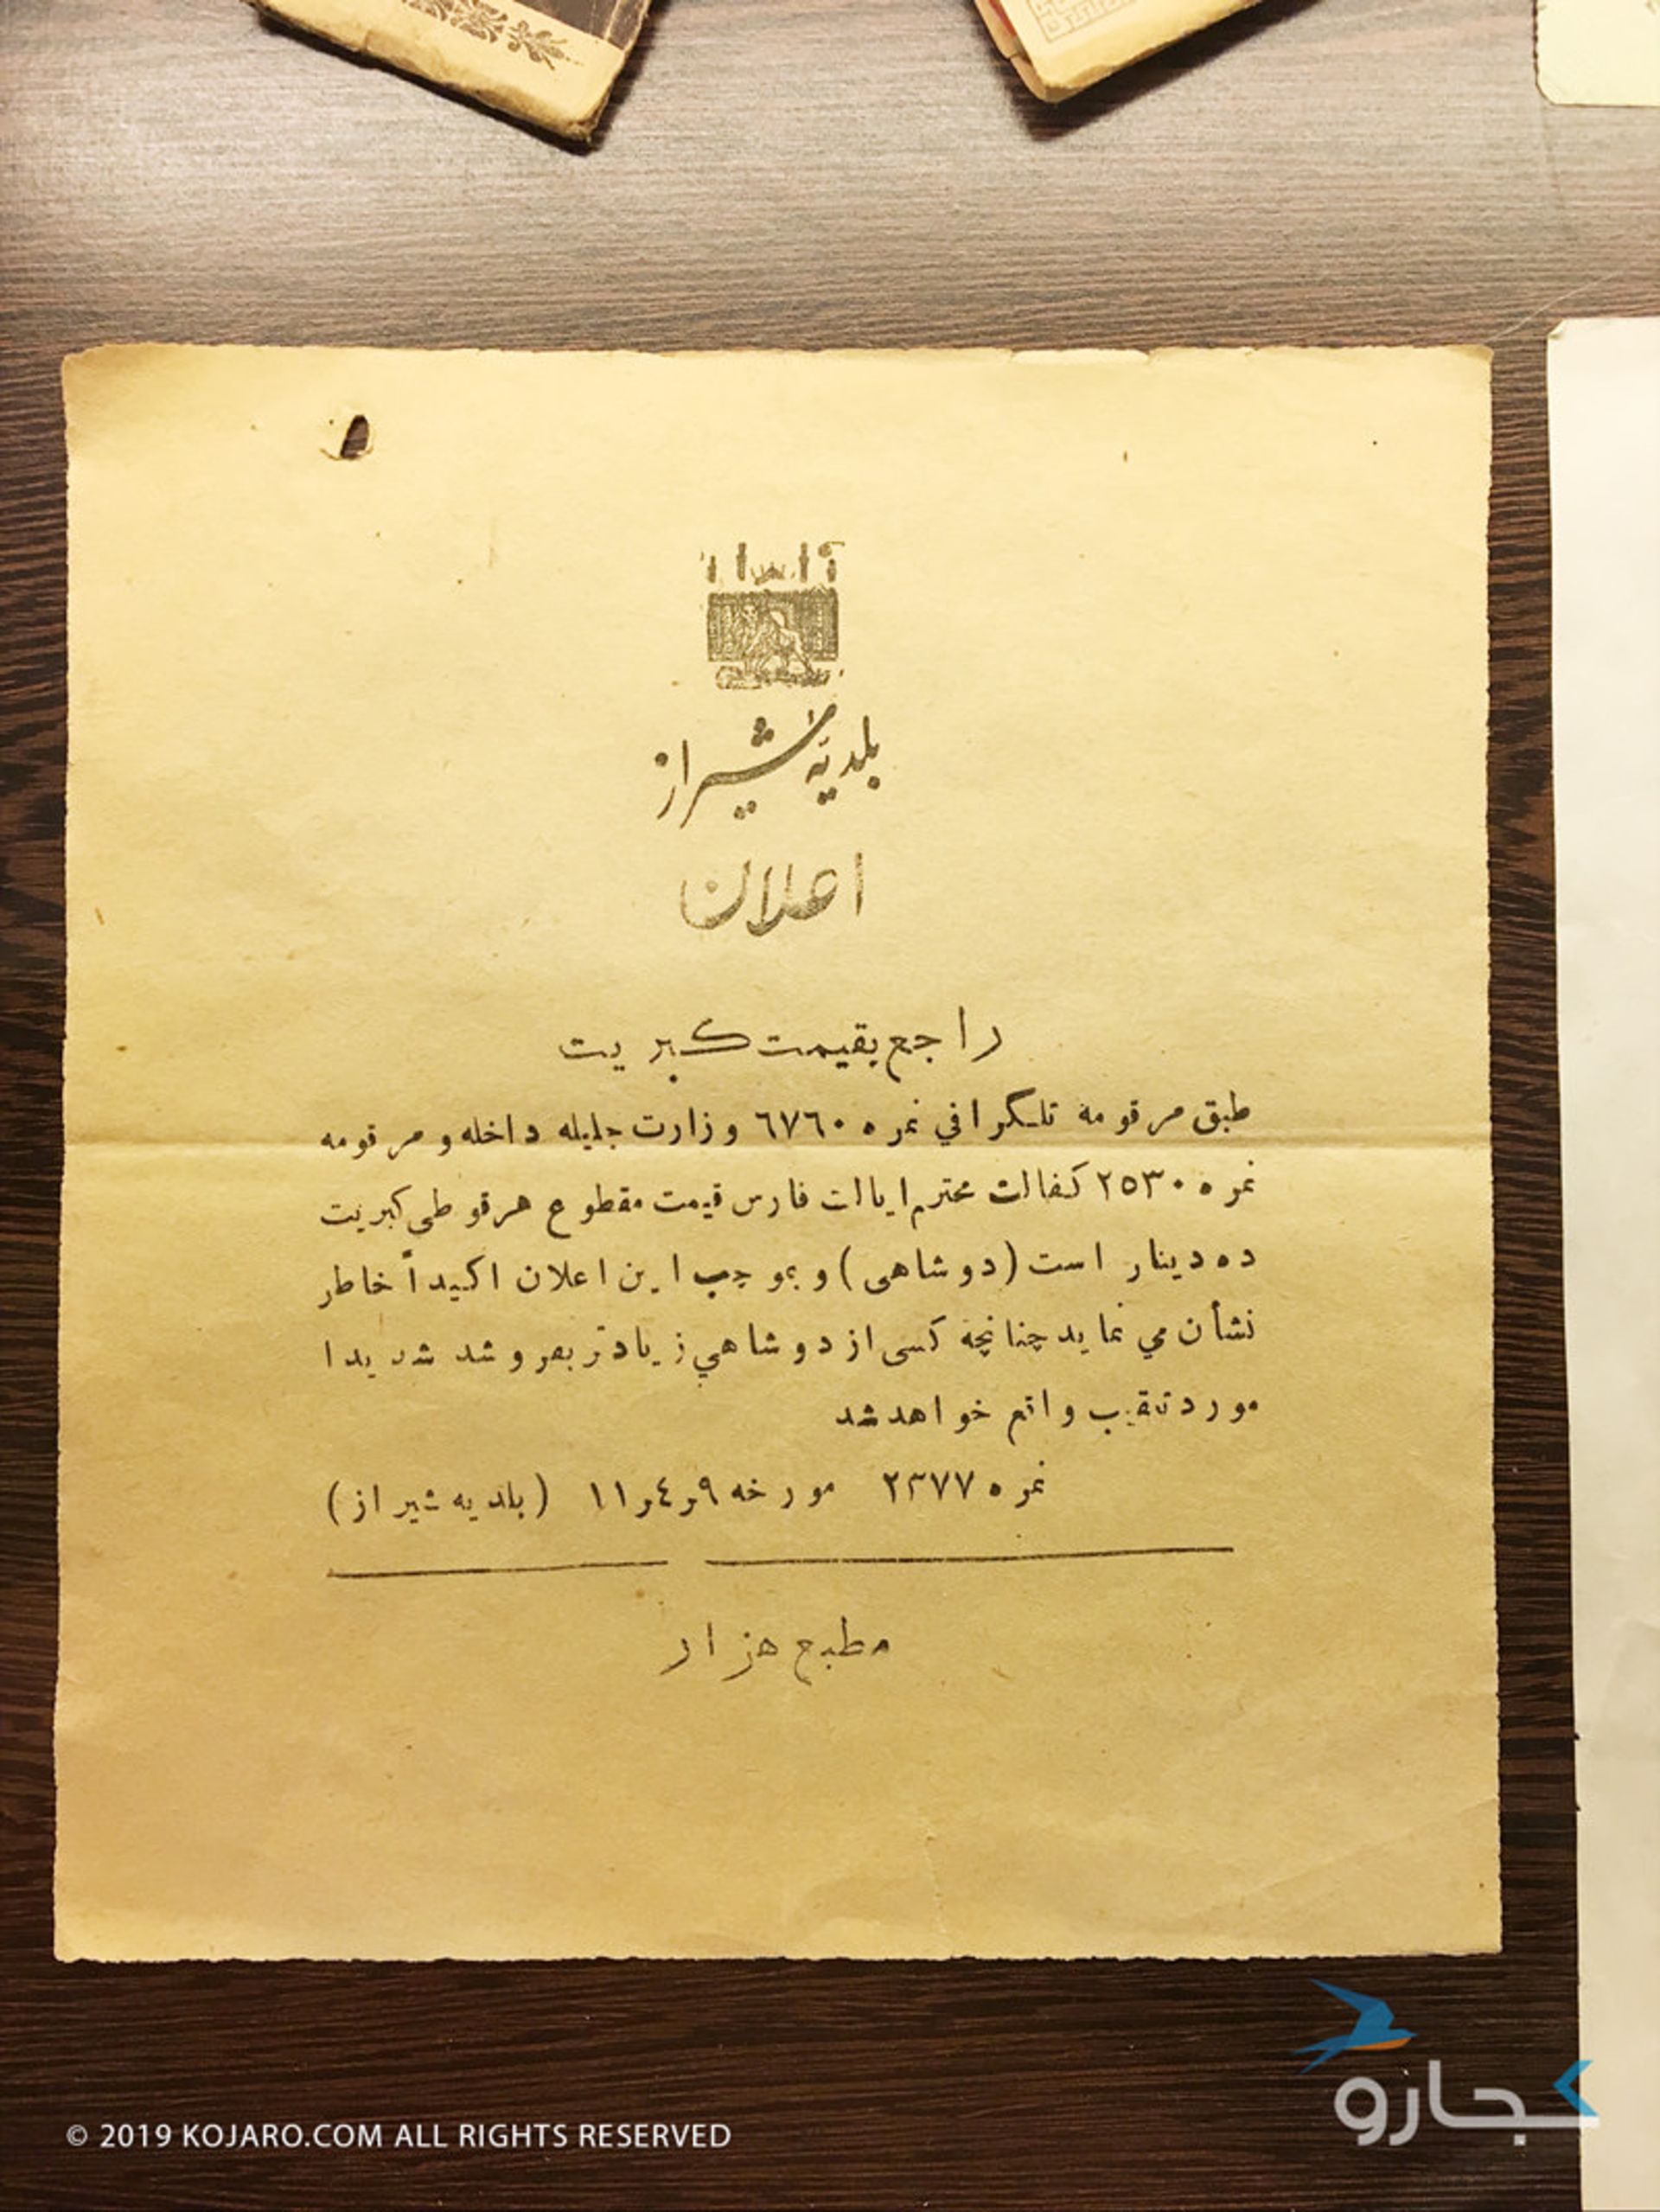 بلدیهٔ شیراز
اعلان
راجع بقیمت کبریت
طبق مرقومه تلگرافي نمره ٦٧٦٠ وزارت جلیله داخله و مرقومه
نمره ٢٥٣٠ کفالت محترم ایالت فارس قیمت مقطوع هر قوطی کبریت
ده دینار است (دو شاهی) و بموجب این اعلان اکیداً خاطر
نشأن مي نماید چنانچه کسی از دو شاهي زیادتر بفروشد شدیدا
مورد تعقیب واقع خواهد شد
نمره ٢٣٧٧ مورخه ٩ر٤ر١١ (بلدیه شیراز)
مطبع هزار
کجارو
© 2019 KOJARO.COM ALL RIGHTS RESERVED